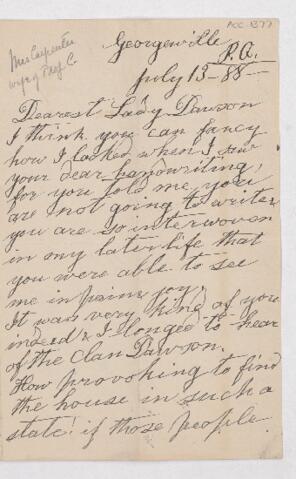 ACC-1377
Mrs Carpenter
wife of Prof C.
Georgeville
P.Q.
July 15-88-
Dearest Lady Dawson
I think you can fancy
how I looked when I saw
your dear handwriting,
for you told me you
are not going to write
you are so interwoven
in my later life that
you were able to see
me in pain & joy,
It was very kind of you
indeed & I longed to hear
of the Clan Dawson.
How provoking to find
the house in such a
state! if those people